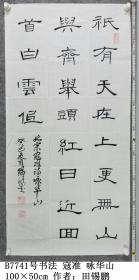 祇有天在上更無山
與齊舉頭紅日近回
首白雲低
北宋寇準詠華山
B7741号书法 寇准 咏华山
100×50cm 作者:田锡鹏